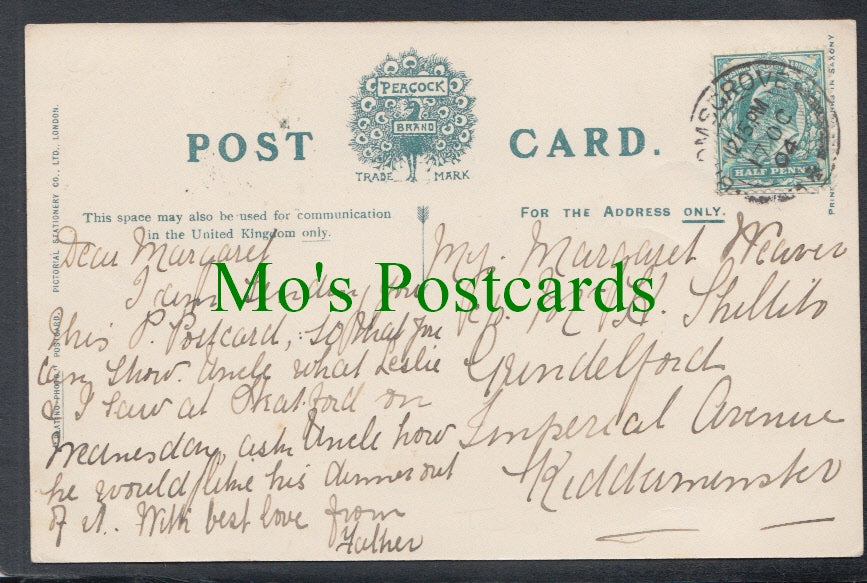 PEACOCK
BRAND
POST CARD.
TRADE MARK
BROMSGROVE
12.15 PM
17 OC
04
HALF PENNY
This space may also be used for communication
in the United Kingdom only.
FOR THE ADDRESS ONLY.
PICTORIAL STATIONERY CO., LTD., LONDON.
IN SAXONY
Dear Margaret
I am sending you
this P. Postcard, so that you
can show Uncle what Leslie
& I saw at Stratford on
Wednesday, ask Uncle how
he would like his dinner out
of it. With best love from
Father
Margaret Weaver
Shellito
Grindelford
Imperial Avenue
Kidderminster
Mo's Postcards